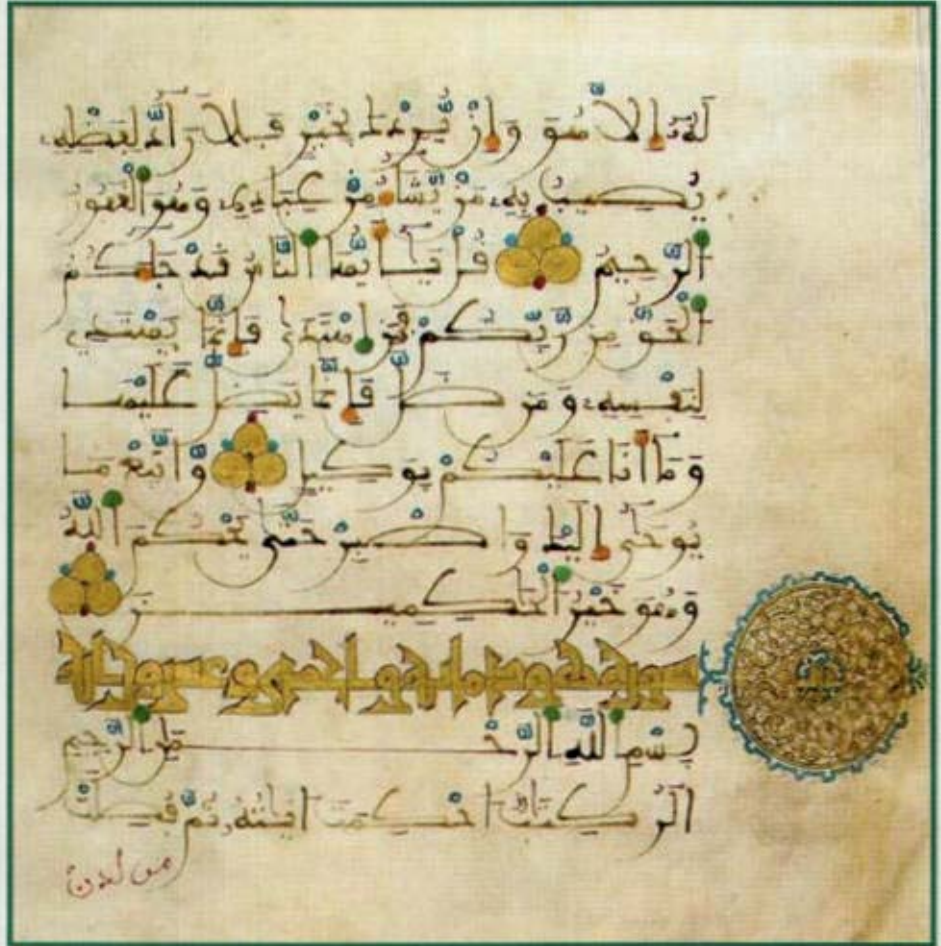 لَهُۥٓ إِلَّا هُوَ وَإِنْ يُّرِدْكَ بِخَيْرٍ فَلَا رَآدَّ لِفَضْلِهِۦ
يُصِيبُ بِهِۦ مَنْ يَّشَآءُ مِنْ عِبَادِهِۦ وَهُوَ ٱلْغَفُورُ
ٱلرَّحِيمُ قُلْ يَٰٓأَيُّهَا ٱلنَّاسُ قَدْ جَآءَكُمُ
ٱلْحَقُّ مِن رَّبِّكُمْ فَمَنِ ٱهْتَدَىٰ فَإِنَّمَا يَهْتَدِي
لِنَفْسِهِۦ وَمَن ضَلَّ فَإِنَّمَا يَضِلُّ عَلَيْهَا
وَمَآ أَنَا عَلَيْكُمْ بِوَكِيلٍ وَٱتَّبِعْ مَا
يُوحَىٰٓ إِلَيْكَ وَٱصْبِرْ حَتَّىٰ يَحْكُمَ ٱللَّهُ
وَهُوَ خَيْرُ ٱلْحَٰكِمِينَ
سورة هود مائة واحدى وعشرون آية
بِسْمِ ٱللَّهِ ٱلرَّحْمَٰنِ ٱلرَّحِيمِ
الٓر كِتَٰبٌ أُحْكِمَتَ ايَٰتُهُۥ ثُمَّ فُصِّلَتْ
من لدن